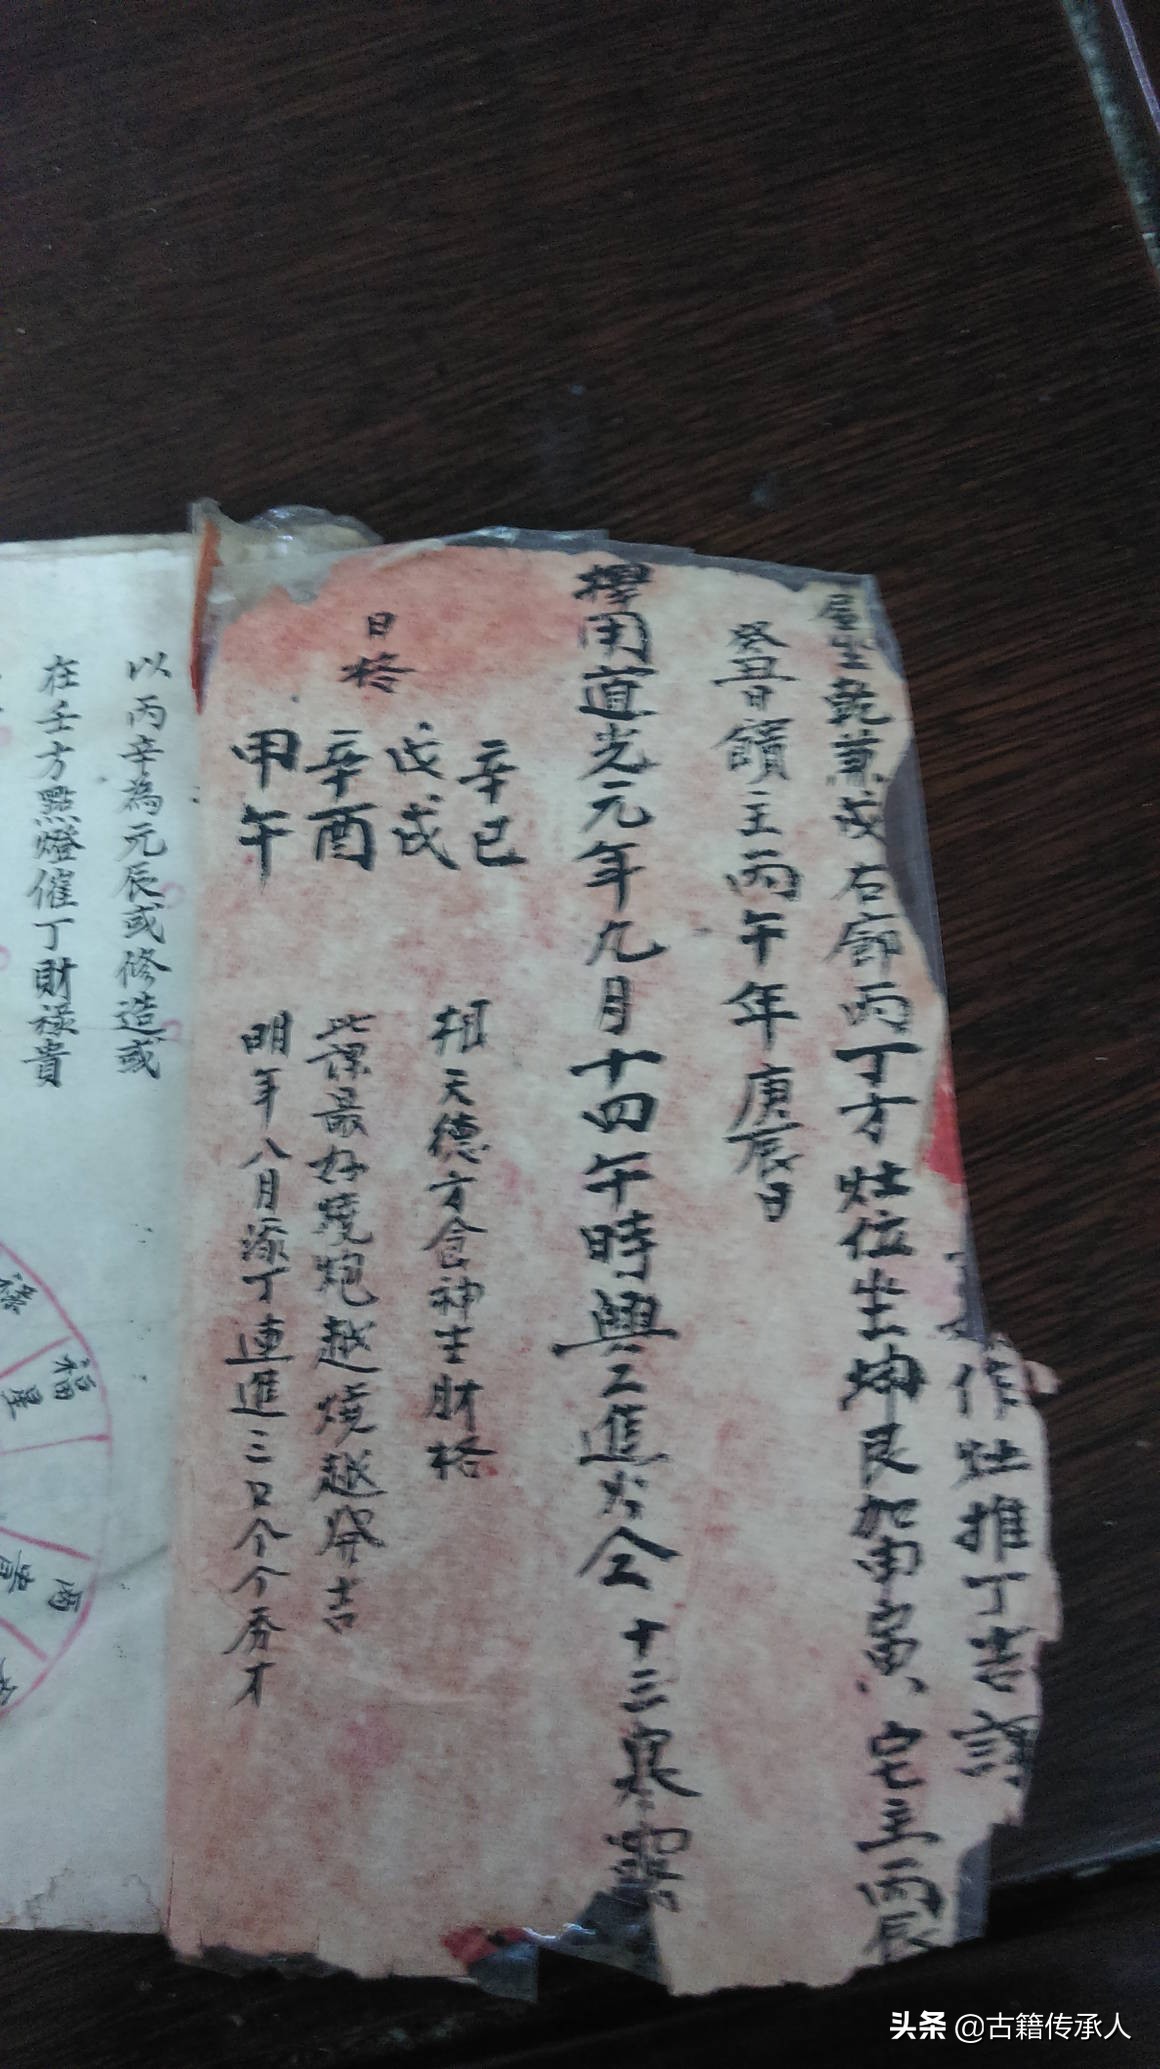 作灶推丁吉課
屋坐乾兼戌右廊丙丁方灶位坐坤艮加申寅宅主丙辰
癸丑日饋主丙午年庚辰日
擇用道光元年九月十四午時興工進火仝十三寒露
辛巳
戊戌
辛酉
甲午
日柊
扭天德方食神生財格
此課最好燒炮越燒越發吉
明年八月添丁連進三口个个夯才
以丙辛為元辰或修造或
在壬方點燈催丁財祿貴
福星
頭条 @古籍传承人